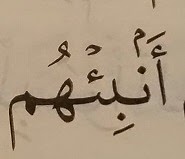 أَنۢبِئۡهُم